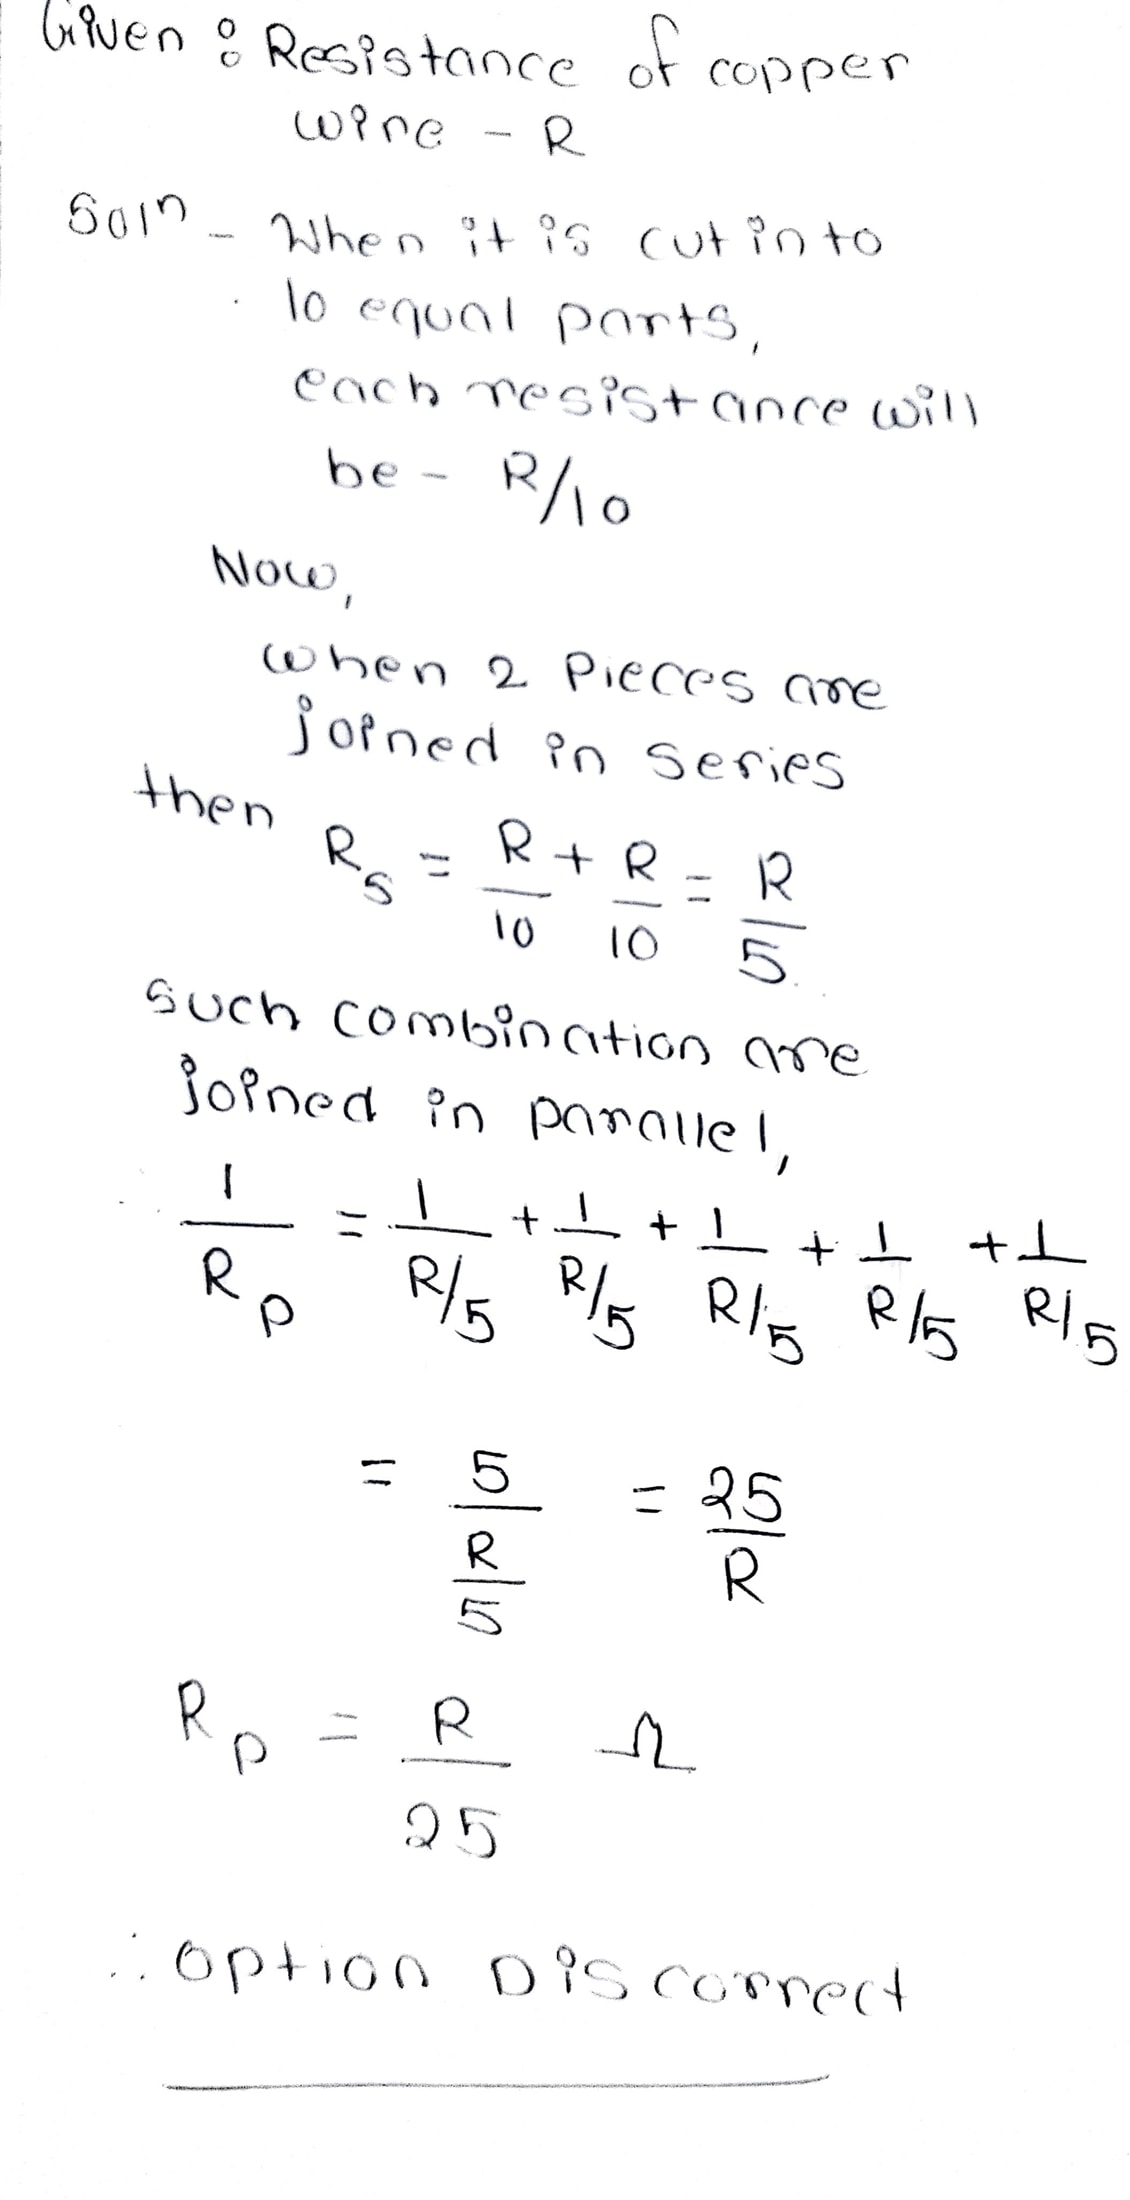 Given : Resistance of copper
wire - R
Soln - When it is cut into
10 equal parts,
each resistance will
be - R/10
Now,
when 2 Pieces are
joined in series
then
R_s = R/10 + R/10 = R/5
such combination are
joined in parallel,
1/R_p = 1/(R/5) + 1/(R/5) + 1/(R/5) + 1/(R/5) + 1/(R/5)
= 5/(R/5) = 25/R
R_p = R/25 Ω
∴ option D is correct